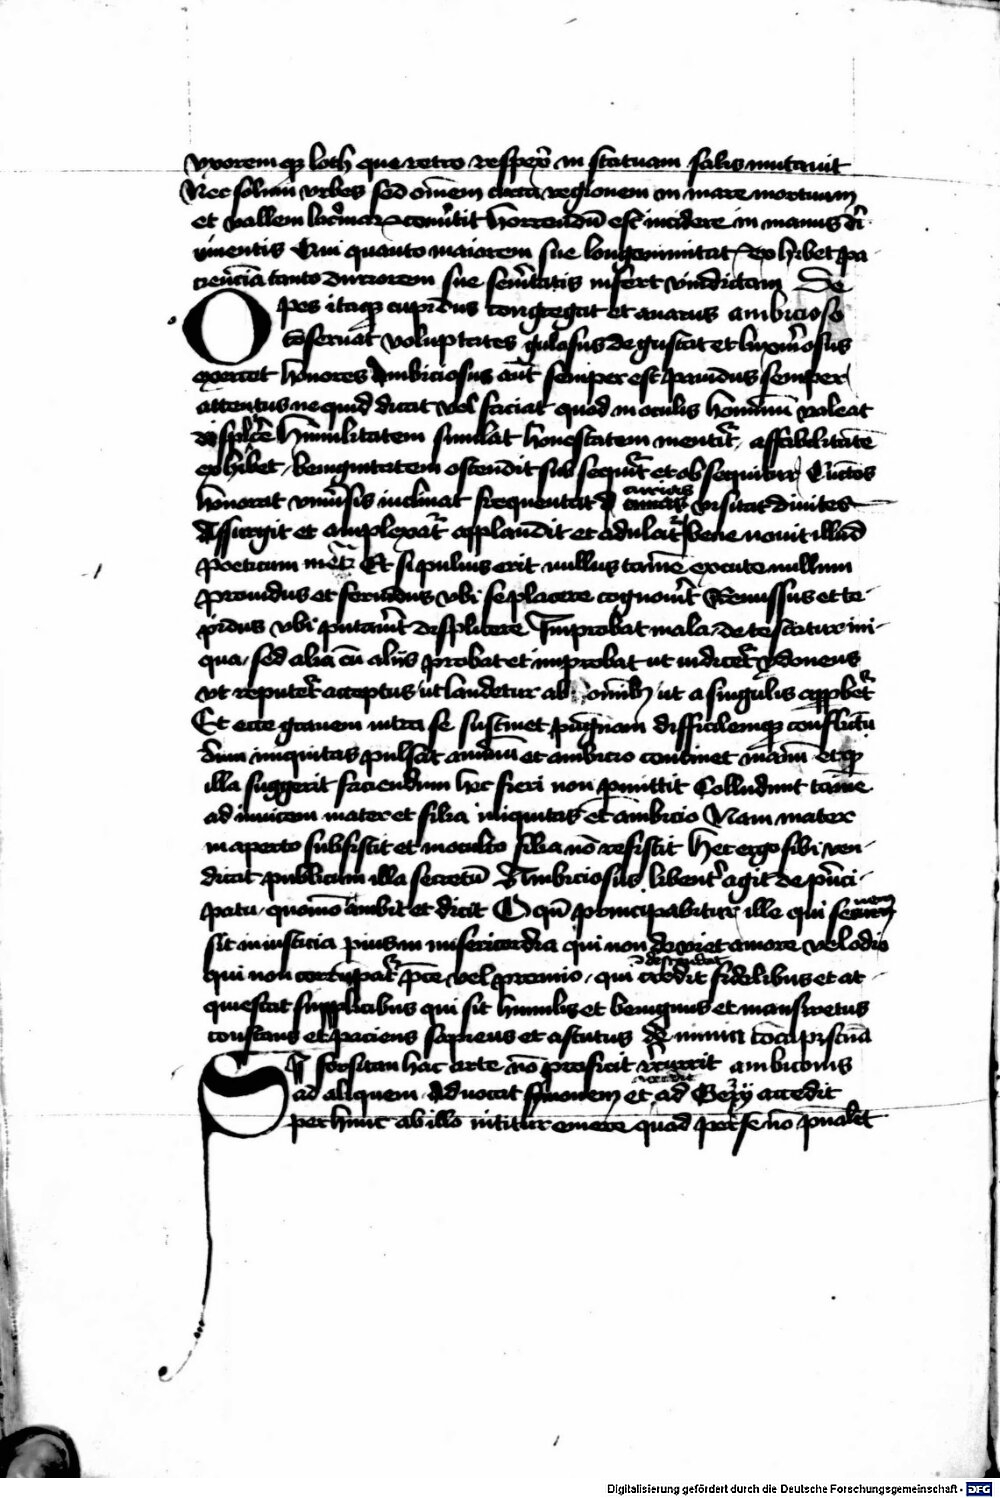 vxorem qꝫ loth que retro respex̄ in statuam salis mutauit
Nec solum vrbes sed om̄em circa regionem in mare mortuum
et vallem conu̓tit horrendū est incidere in manus dī
viuentis Qui quanto maiorem sue longanimitat exhibet pa-
cienciā tanto duriorem sue seu̓itatis infert vindictam De
Opes itaqꝫ cupidus congregat et auarus ambicioso
cōseruat voluptates gulosus degustat et luxuriosus
exercet honores Ambiciosus aūt semper est pauidus semper
attentus ne quid dicat vel faciat quod in oculis hominū valeat
displicē̓ humilitatem simulat honestatem mentit̄ affabilitatē
exhibet benignitatem ostendit subsequit̄ et obsequitur Cūctos
honorat vniu̓sis inclinat frequentat curias visitat diuites
Assurgit et amplexat̄ applaudit et adulat̄ bene nouit illud
poeticum Et si puluis erit nullus tamē excute nullum
prouidus et feruidus vbi se placere cognou̓it Remissus et te-
pidus vbi putau̓it displicere Improbat mala detestatur ini-
qua sed alia cū aliis probat et improbat ut iudicet̄ ydoneus
vt reputet̄ acceptus ut laudetur ab omībꝫ ut a singulis app̄bet̄
Et ecce grauem intra se sustinet pugnam difficilemqꝫ conflictū
dum iniquitas pulsat animū et ambicio continet manū et qꝫ
illa suggerit faciendum hec fieri non p̄mittit Colludunt tamē
ad inuicem mater et filia iniquitas et ambicio Nam mater
in aperto subsistit et in occulto filia nō resistit Hec ergo sibi ven-
dicat publicum illa secretū Ambiciosus libent̓ agit de p̓nci-
patu quomō ambit et dicit O qn̄ principabitur ille qui seuerus
sit in iusticia pius in misericordia qui non deuiet amore vel odio
qui non corrumpat̄ p̄ce vel precio qui credit fidelibus et ac-
quiescat supplicibus qui sit humilis et benignus et mansuetus
constans et paciens sapiens et astutus
Si forsitan hac arte nō proficit recurrit ambicionis
ad aliquem Aduocat symonem et ad Gezy accedit
per hunc ab illo nititur emere quod per se nō p̄ualet
Digitalisierung gefördert durch die Deutsche Forschungsgemeinschaft - DFG